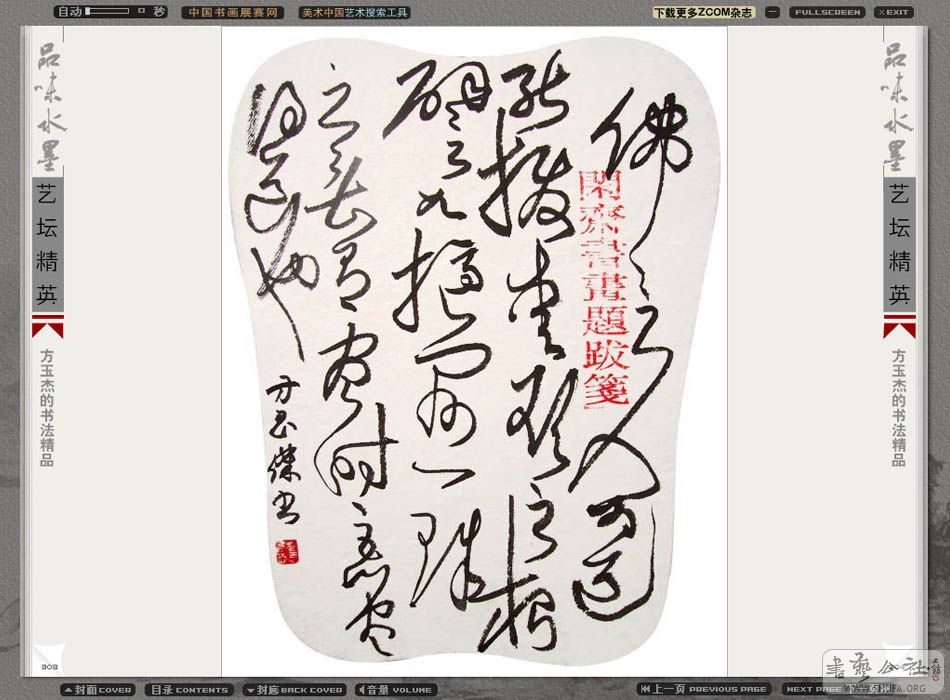 自动
秒
中国书画展赛网
美术中国艺术搜索工具
下载更多ZCOM杂志
FULLSCREEN
EXIT
品味水墨
艺坛精英
方玉杰的书法精品
佛人為道
能拔愛欲之根
譬摘珠
之有盡時惡盡
得道也
方玉傑書
閑齋書畫題跋箋
品味水墨
艺坛精英
方玉杰的书法精品
封面 COVER
目录 CONTENTS
封底 BACK COVER
音量 VOLUME
上一页 PREVIOUS PAGE
NEXT PAGE